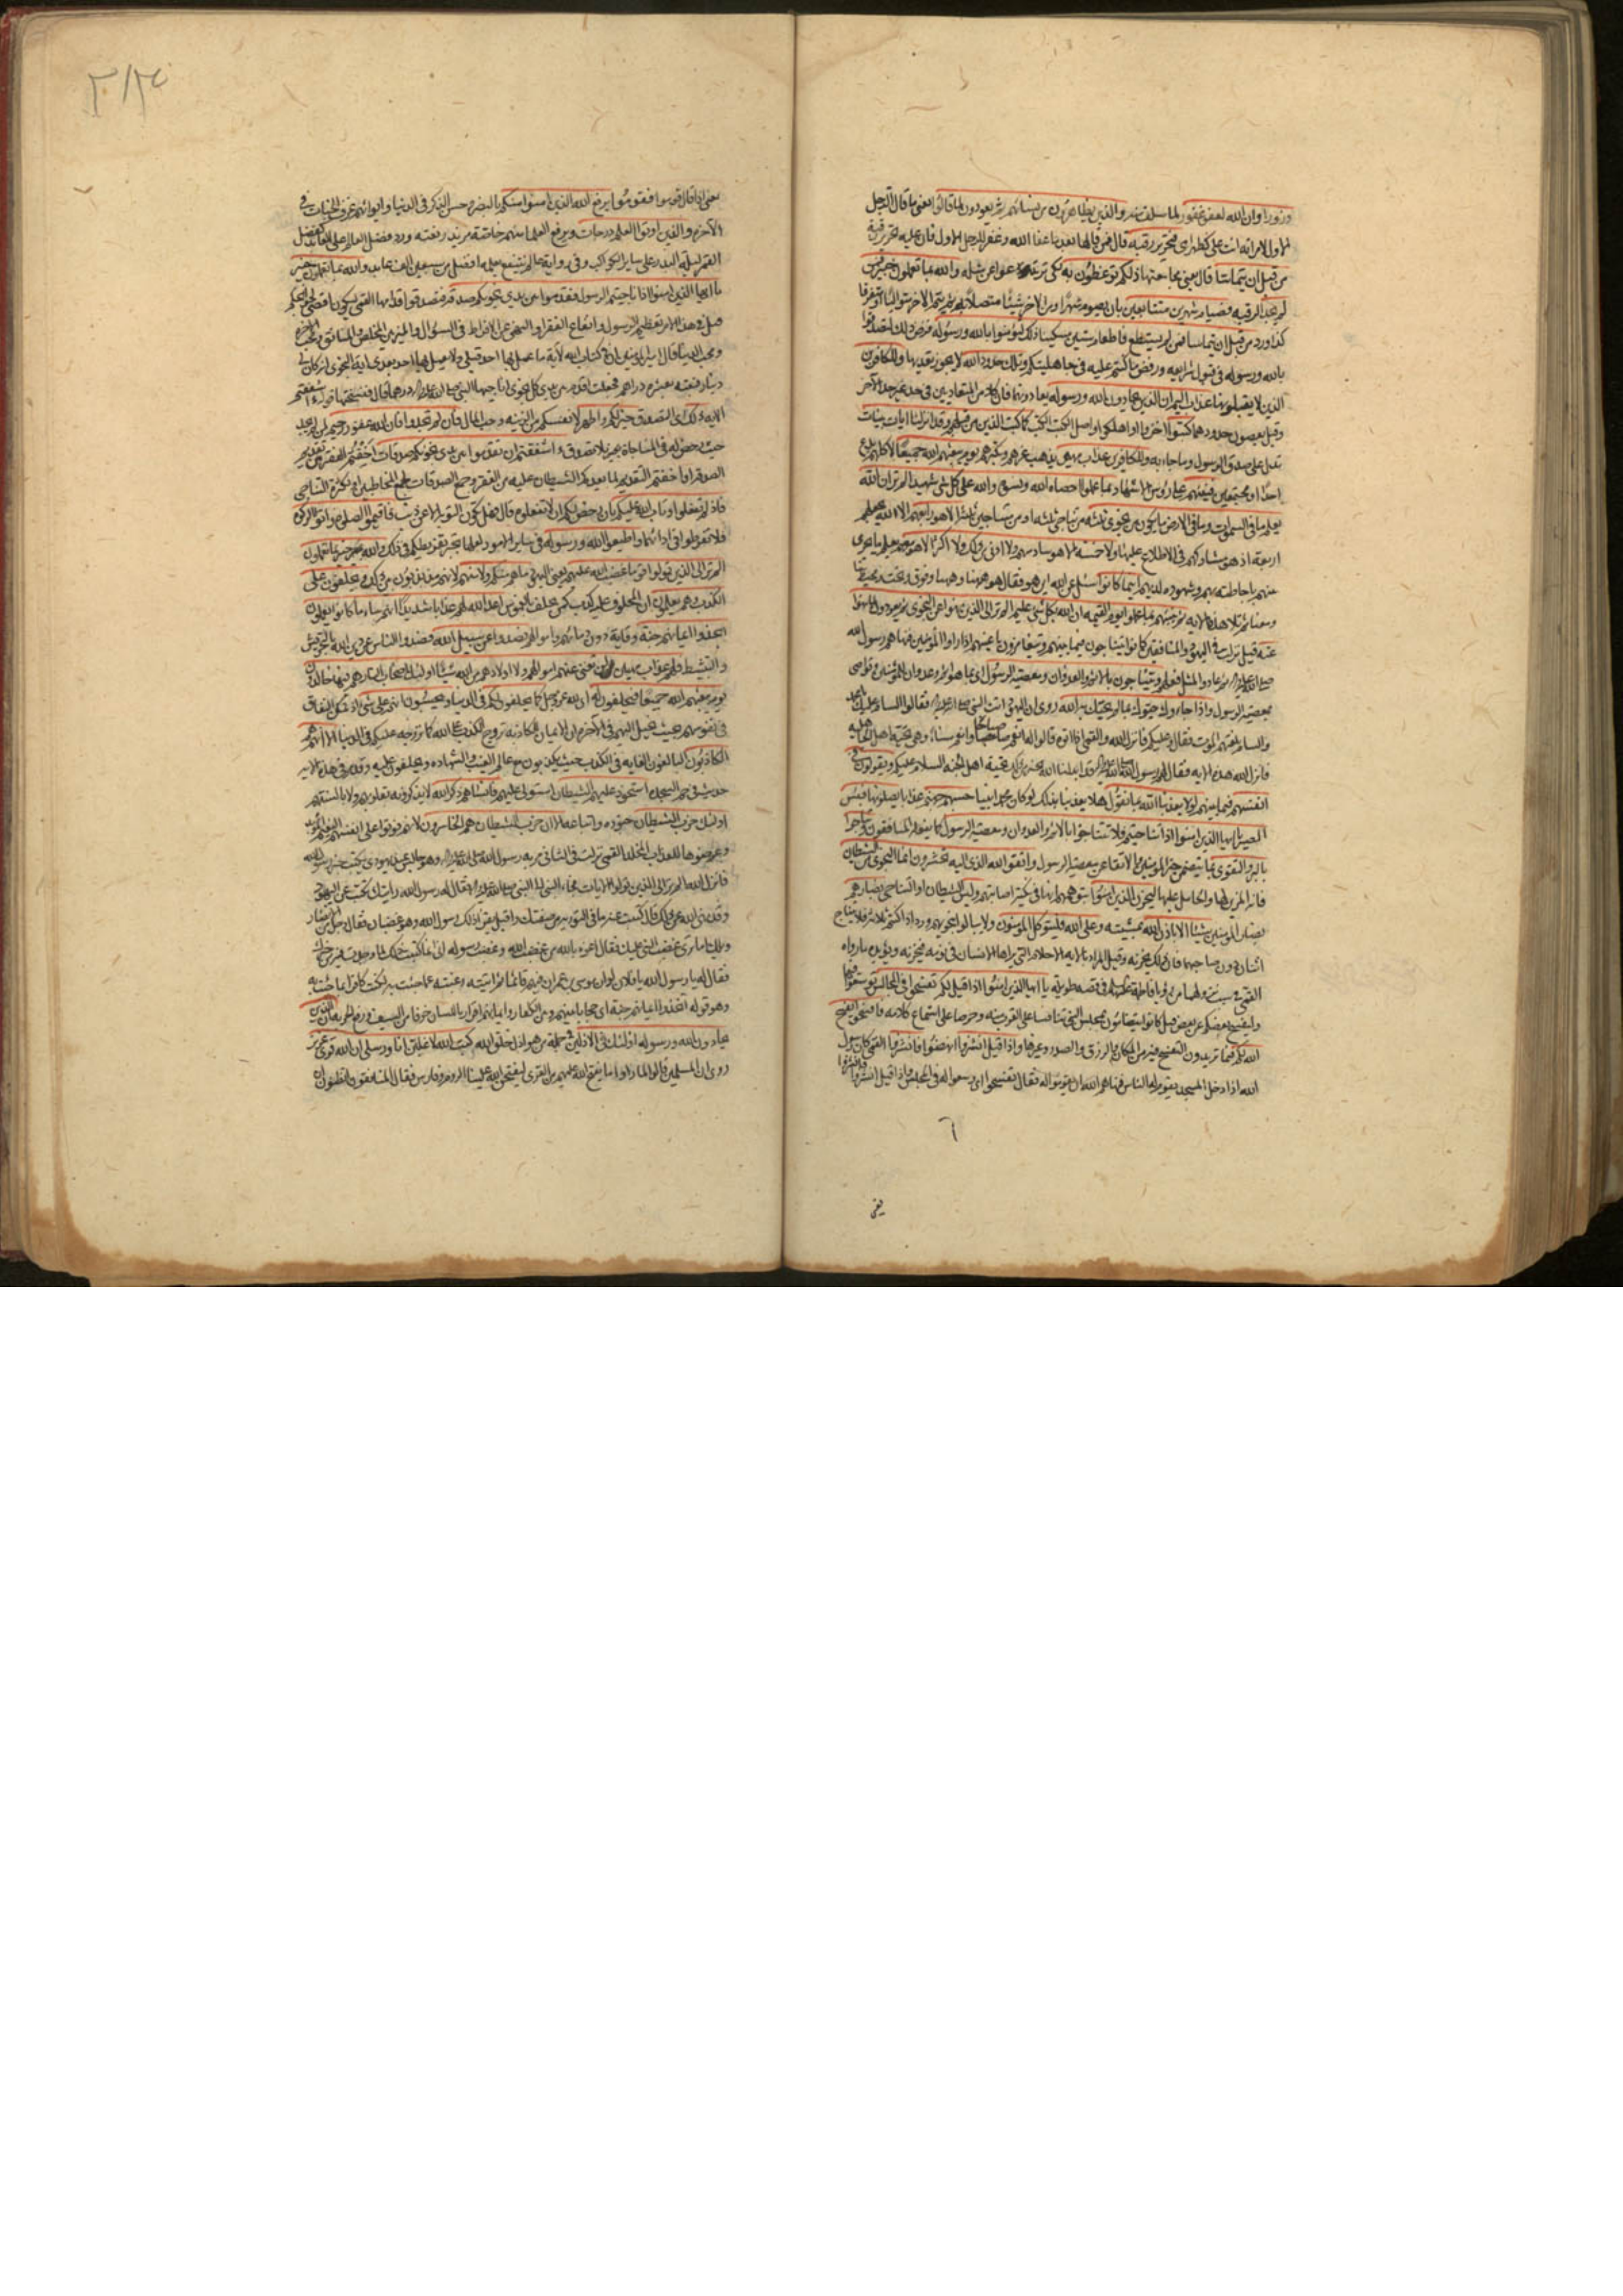 وزورا وان الله لعفو غفور لما سلف منه والذين يظاهرون من نسائهم ثم يعودون لما قالوا يعنى ما قال الرجل
الاول لامراته انت على كظهر امى فتحرير رقبة قال فمن قالها بعد ما عفا الله وغفر للرجل الاول فان عليه تحرير رقبة
من قبل ان يتماسا قال يعنى مجامعتها ذلكم توعظون به لكى ترتدعوا عن مثله والله بما تعملون خبير فمن
لم يجد الرقبة فصيام شهرين متتابعين بان يصوم شهرا ومن الاخر شيئا متصلا به ثم يتم الاخر متواليا او متفرقا
كذا ورد من قبل ان يتماسا فمن لم يستطع فاطعام ستين مسكينا ذلك لتؤمنوا بالله ورسوله فرض ذلك لتصدقوا
بالله ورسوله فى قبول شرايعه ورفض ما كنتم عليه فى جاهليتكم وتلك حدود الله لا يجوز تعديها وللكافرين
الذين لا يقبلونها عذاب اليم ان الذين يحادون الله ورسوله يعادونهما فان كلا من المتعاديين فى حد غير حد الاخر
وقيل يضعون حدودهما كبتوا اخزوا او اهلكوا واصل الكبت الكب كما كبت الذين من قبلهم وقد انزلنا ايات بينات
تدل على صدق الرسول وما جاء به وللكافرين عذاب مهين يذهب عزهم وتكبرهم يوم يبعثهم الله جميعا كلهم لا يدع
احدا او مجتمعين فينبئهم على رؤس الاشهاد بما عملوا احصاه الله ونسوه والله على كل شىء شهيد الم تر ان الله
يعلم ما فى السموات وما فى الارض ما يكون من نجوى ثلثة من تناجى ثلثة او من متناجين ثلثة الا هو رابعهم الا الله يجعلهم
اربعة اذ هو مشاركهم فى الاطلاع عليها ولا خمسة الا هو سادسهم ولا ادنى من ذلك ولا اكثر الا هو معهم يعلم ما يجرى
بينهم باحاطته بهم وشهوده لديهم اينما كانوا سئل عن الله اين هو فقال هو ههنا وههنا وفوق وتحت ومحيط بنا
ومعنا ثم تلا هذه الاية ثم ينبئهم بما عملوا يوم القيمة ان الله بكل شىء عليم الم تر الى الذين نهوا عن النجوى ثم يعودون لما نهوا
عنه قيل نزلت فى اليهود والمنافقين كانوا يتناجون فيما بينهم ويتغامزون باعينهم اذا راوا المؤمنين فنهاهم رسول الله
ثم عادوا لمثل فعلهم ويتناجون بالاثم والعدوان ومعصية الرسول اى بما هو اثم وعدوان للمؤمنين وتواصى
بمعصية الرسول واذا جاءوك حيوك بما لم يحيك به الله روى ان اليهود اتت النبى فقالوا السام عليك يا محمد
والسام بلغتهم الموت فقال وعليكم فانزل الله والقمى اذا اتوه قالوا له انعم صباحا وانعم مساء وهى تحية اهل الجاهلية
فانزل الله هذه الاية فقال لهم رسول الله قد ابدلنا الله بخير من ذلك تحية اهل الجنة السلام عليكم ويقولون فى
انفسهم فيما بينهم لولا يعذبنا الله بما نقول هلا يعذبنا بذلك لو كان محمد نبيا حسبهم جهنم عذابا يصلونها فبئس
المصير يا ايها الذين امنوا اذا تناجيتم فلا تتناجوا بالاثم والعدوان ومعصية الرسول كما يفعله المنافقون وتناجوا
بالبر والتقوى بما يتضمن خير المؤمنين والاتقاء عن معصية الرسول واتقوا الله الذى اليه تحشرون انما النجوى من الشيطان
فانه المزين لها والحامل عليها ليحزن الذين امنوا بتوهمهم انها فى نكبة اصابتهم وليس الشيطان او التناجى بضارهم
بضار المؤمنين شيئا الا باذن الله بمشيته وعلى الله فليتوكل المؤمنون ولا يبالوا بنجويهم ورد اذا كنتم ثلاثة فلا يتناج
اثنان دون صاحبهما فان ذلك يحزنه وقيل المراد بالاية الاحلام التى يراها الانسان فى نومه فيحزنه ويؤيده ما رواه
القمى فى سبب نزولها من رؤيا فاطمة عليها فى قصة طويلة يا ايها الذين امنوا اذا قيل لكم تفسحوا فى المجالس توسعوا فيها
وليفسح بعضكم عن بعض قيل كانوا يتضامون بمجلس النبى تنافسا على القرب منه وحرصا على استماع كلامه فافسحوا يفسح
الله لكم فيما تريدون التفسح فيه من المكان والرزق والصدر وغيرها واذا قيل انشزوا انهضوا فانشزوا القمى كان رسول
الله اذا دخل المسجد يقوم له الناس فنهاهم الله ان يقوموا له فقال تفسحوا اى وسعوا له فى المجلس واذا قيل انشزوا فانشزوا
٦
يعنى
يعنى اذا قال قوموا فقوموا يرفع الله الذين امنوا منكم بالنصر وحسن الذكر فى الدنيا وايوائهم غرف الجنات فى
الاخرة والذين اوتوا العلم درجات ويرفع العلماء منهم خاصة مزيد رفعة ورد فضل العالم على العابد كفضل
القمر ليلة البدر على ساير الكواكب وفى رواية عالم ينتفع بعلمه افضل من سبعين الف عابد والله بما تعملون خبير
يا ايها الذين امنوا اذا ناجيتم الرسول فقدموا بين يدى نجويكم صدقة فتصدقوا قدامها القمى ليكون اقضى لحوائجكم
قيل فى هذا الامر تعظيم الرسول وانتفاع الفقراء والنهى عن الافراط فى السؤال والميز بين المخلص والمنافق ومحب الاخرة
ومحب الدنيا قال امير المؤمنين ان فى كتاب الله لاية ما عمل بها احد قبلى ولا يعمل بها احد بعدى اية النجوى انه كان لى
دينار فبعته بعشرة دراهم فجعلت اقدم بين يدى كل نجوى اناجيها النبى درهما قال فنسختها قوله ءاشفقتم
الاية ذلك اى التصدق خير لكم واطهر لانفسكم من الريبة وحب المال فان لم تجدوا فان الله غفور رحيم لمن لم يجد
حيث رخص له فى المناجاة بغير تصدق ءاشفقتم ان تقدموا بين يدى نجويكم صدقات اخفتم الفقر من تقديم
الصدقة او اخفتم التقديم لما يعدكم الشيطان عليه من الفقر وجمع الصدقات لجمع المخاطبين او لكثرة التناجى
فاذ لم تفعلوا وتاب الله عليكم بان رخص لكم ان لا تفعلوه قال فهل تكون التوبة الا عن ذنب فاقيموا الصلوة واتوا الزكوة
فلا تفرطوا فى ادائهما واطيعوا الله ورسوله فى ساير الامور لعلها تجبر تفريطكم فى ذلك والله خبير بما تعملون
الم تر الى الذين تولوا قوما غضب الله عليهم يعنى اليهود ما هم منكم ولا منهم لانهم مذبذبون بين ذلك ويحلفون على
الكذب وهم يعلمون ان المحلوف عليه كذب كمن يحلف بالغموس اعد الله لهم عذابا شديدا انهم ساء ما كانوا يعملون
اتخذوا ايمانهم جنة وقاية دون دمائهم واموالهم فصدوا عن سبيل الله فصدوا الناس عن دين الله بالتحريش
والتثبيط فلهم عذاب مهين لن تغنى عنهم اموالهم ولا اولادهم من الله شيئا اولئك اصحاب النار هم فيها خالدون
يوم يبعثهم الله جميعا فيحلفون له اى لله عز وجل كما يحلفون لكم فى الدنيا ويحسبون انهم على شىء اذ تمكن النفاق
فى نفوسهم بحيث يخيل اليهم فى الاخرة ان الايمان الكاذبة تروج الكذب على الله كما تروجه عليكم فى الدنيا الا انهم هم
الكاذبون البالغون الغاية فى الكذب حيث يكذبون مع عالم الغيب والشهادة ويحلفون عليه وقد مر فى هذه الاية
حديث فى حم السجدة استحوذ عليهم الشيطان استولى عليهم فانساهم ذكر الله لا يذكرونه بقلوبهم ولا بالسنتهم
اولئك حزب الشيطان جنوده واتباعه الا ان حزب الشيطان هم الخاسرون لانهم فوتوا على انفسهم النعيم المؤبد
وعرضوها للعذاب المخلد القمى نزلت فى الثانى مر به رسول الله وهو جالس عند يهودى يكتب خبر رسول الله
فانزل الله الم تر الى الذين تولوا الايات فجاء الى النبى فقال له رسول الله رايتك تكتب عن اليهود
وقد نهى الله عن ذلك قال كتبت عنه ما فى التورية من صفتك واقبل يقرء ذلك رسول الله وهو غضبان فقال رجل من الانصار
ويلك اما ترى غضب النبى عليك فقال اعوذ بالله من غضب الله وغضب رسوله انى انما كتبت ذلك لما وجدت فيه من خبرك
فقال له يا رسول الله يا فلان لو ان موسى بن عمران فيهم قائما ثم اتيته رغبة عما جئت به لكنت كافرا بما جئت به
وهو قوله اتخذوا ايمانهم جنة اى حجابا بينهم وبين الكفار وايمانهم اقرار باللسان خوفا من السيف ورفع الجزية ان الذين
يحادون الله ورسوله اولئك فى الاذلين فى جملة من هو اذل خلق الله كتب الله لاغلبن انا ورسلى ان الله قوى عزيز
روى ان المسلمين قالوا لما راوا ما يفتح الله عليهم من القرى ليفتحن الله علينا الروم وفارس فقال المنافقون اتظنون ان